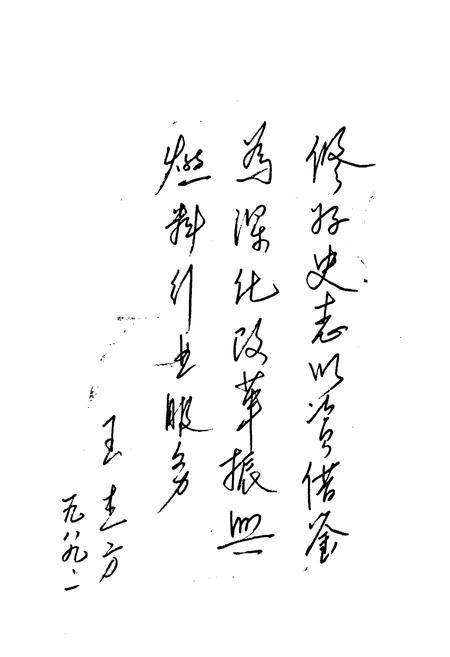 修好史志以资借鉴
为深化改革振兴
燃料行业服务
王圭方
一九八九、二